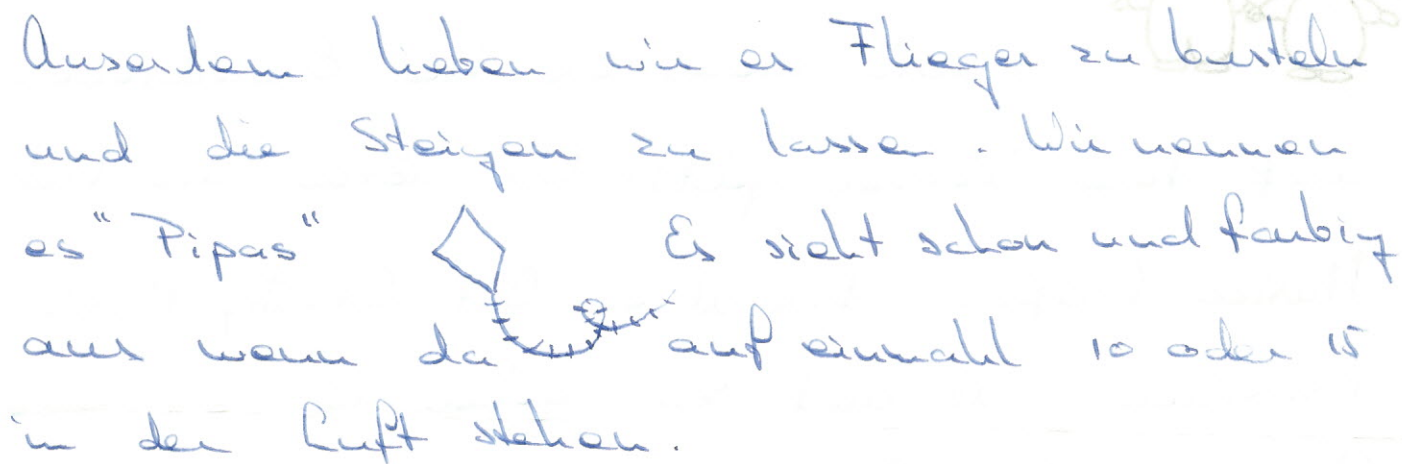 Auserdem lieben wir es Flieger zu basteln
und die Steigen zu lassen. Wir nennen
es "Pipas" Es sieht schon und farbig
aus wenn da auf einmahl 10 oder 15
in der Luft stehen.